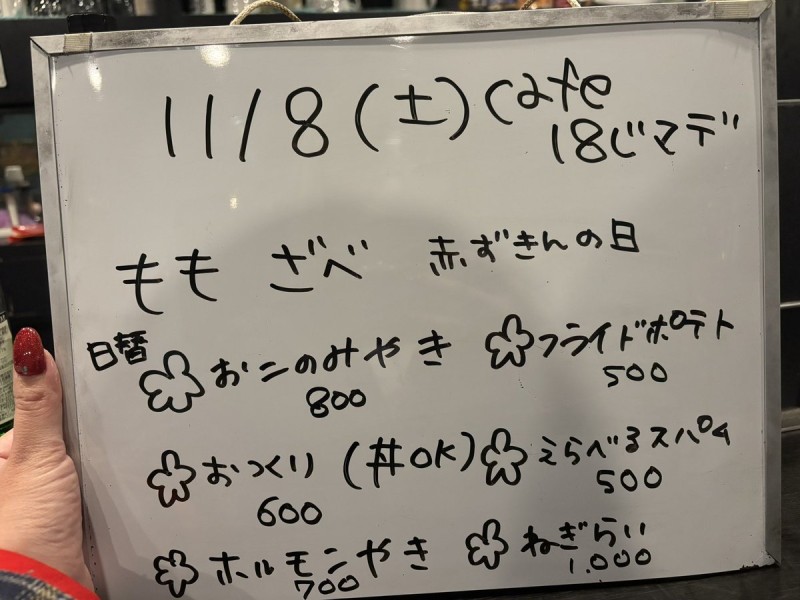 11/8(土)Cafe
18じマデ
もも ざべ 赤ずきんの日
日替
おこのみやき
800
フライドポテト
500
おつくり(丼OK)
600
えらべるスパム
500
ホルモンやき
700
ねぎらい
1.000